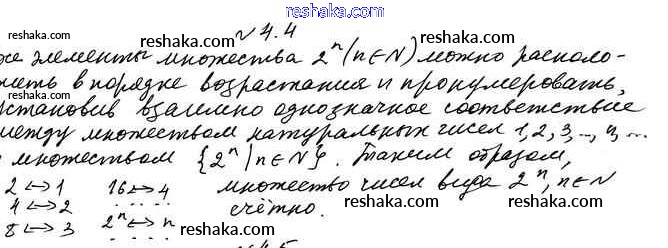 reshaka.com
№ 4.4
reshaka.com reshaka.com
же элементы множества 2ⁿ (n∈N) можно располо-
жить в порядке возрастания и пронумеровать,
установив взаимно однозначное соответствие
между множеством натуральных чисел 1, 2, 3, ..., n, ...
reshaka.com reshaka.com reshaka.com
и множеством {2ⁿ | n∈N}. Таким образом,
2 ↔ 1 16 ↔ 4 множество чисел вида 2ⁿ, n∈N
4 ↔ 2 . . . . . счётно.
8 ↔ 3 2ⁿ ↔ n
. . . . .
reshaka.com reshaka.com reshaka.com
№ 4.5